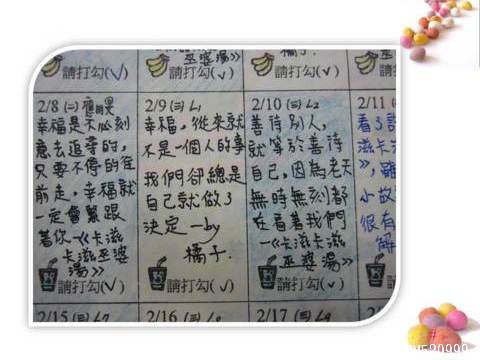 巫婆
湯》
請打勾(√)
橘子.
請打勾(√)
巫婆湯》
請打勾(√)
2/8 (二)
幸福是不必刻
意去追尋的,
只要不停的往
前走,幸福就
一定會緊跟
著你—《卡滋
卡滋巫婆
湯》
請打勾(√)
2/9 (三) L1
幸福,從來就
不是一個人的事
我們卻總是
自己就做了
決定—by
橘子.
請打勾(√)
2/10 L2
善待別人,
就等於善待
自己,因為老天
無時無刻都
在看著我們
—《卡滋
卡滋巫婆
湯》
請打勾(√)
2/11
看了
滋卡
》,雖
小故
很有
解
2/15 L7
2/16
2/17 L9